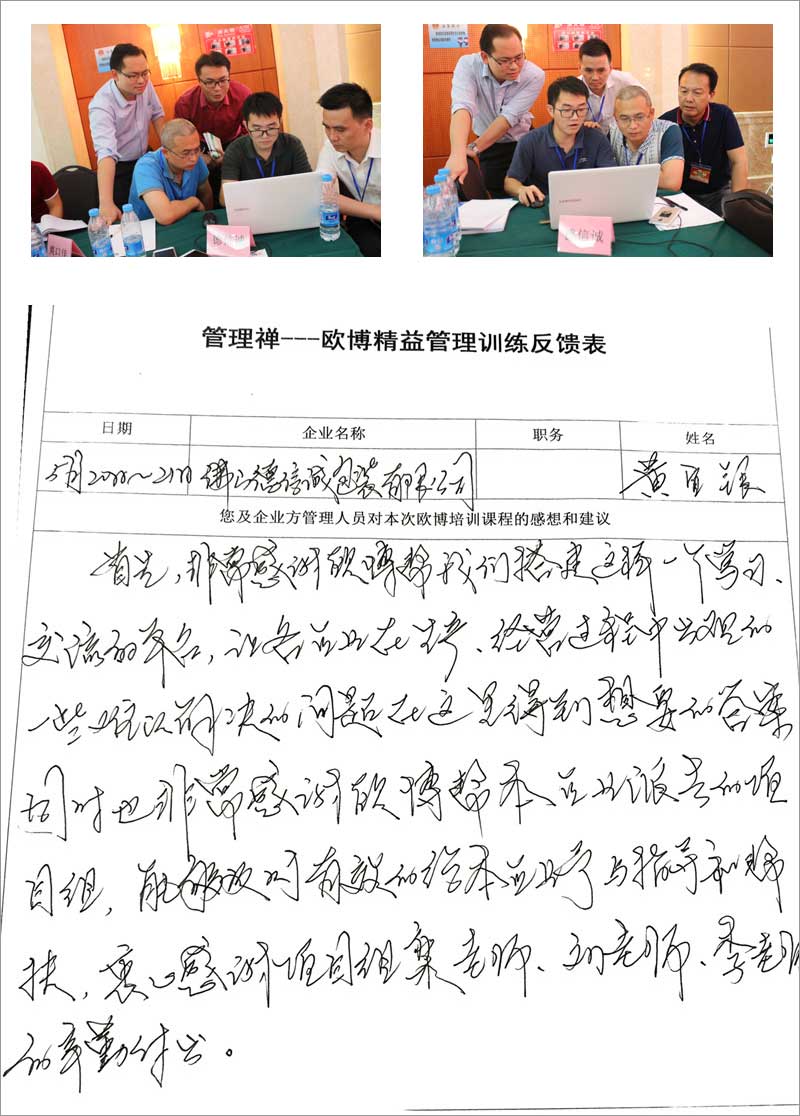 信诚
管理禅---欧博精益管理训练反馈表
日期 企业名称 职务 姓名
5月20日~21日 佛山德信诚包装有限公司 黄
您及企业方管理人员对本次欧博培训课程的感想和建议
首先，非常感谢欧博帮我们搭建这样一个学习、
交流的平台，让各企业在生产、经营过程中出现的
一些难以解决的问题在这里得到想要的答案
同时也非常感谢欧博给本企业派去的项
目组，能够及时有效的给本企业予与指导和帮
扶，衷心感谢项目组 老师、刘老师、李老师
的辛勤付出。